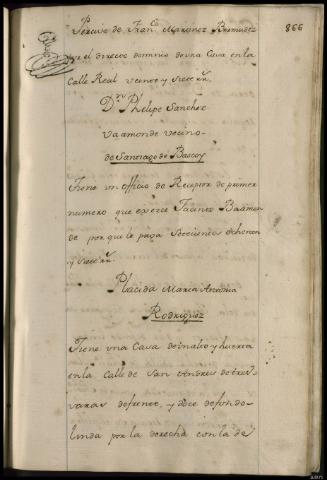 866
Percive de Fran.co Martinez Bermudez
por el directo dominio de una Casa en la
Calle Real veinte y siete rr.
D.n Phelipe Sanchez
Vaamonde vecino
de Santiago de Bascoy
Tiene un officio de Receptor de primer
numero que exerce Jacinto Baamon
de por que le paga Setecientos ochenta
y siete rr.
Placida Maria Antonia
Rodriguez
Tiene una Casa de inalto y huerta
en la Calle de San Andres de tres
varas de frente, y doce de fondo
linda por la derecha con la de